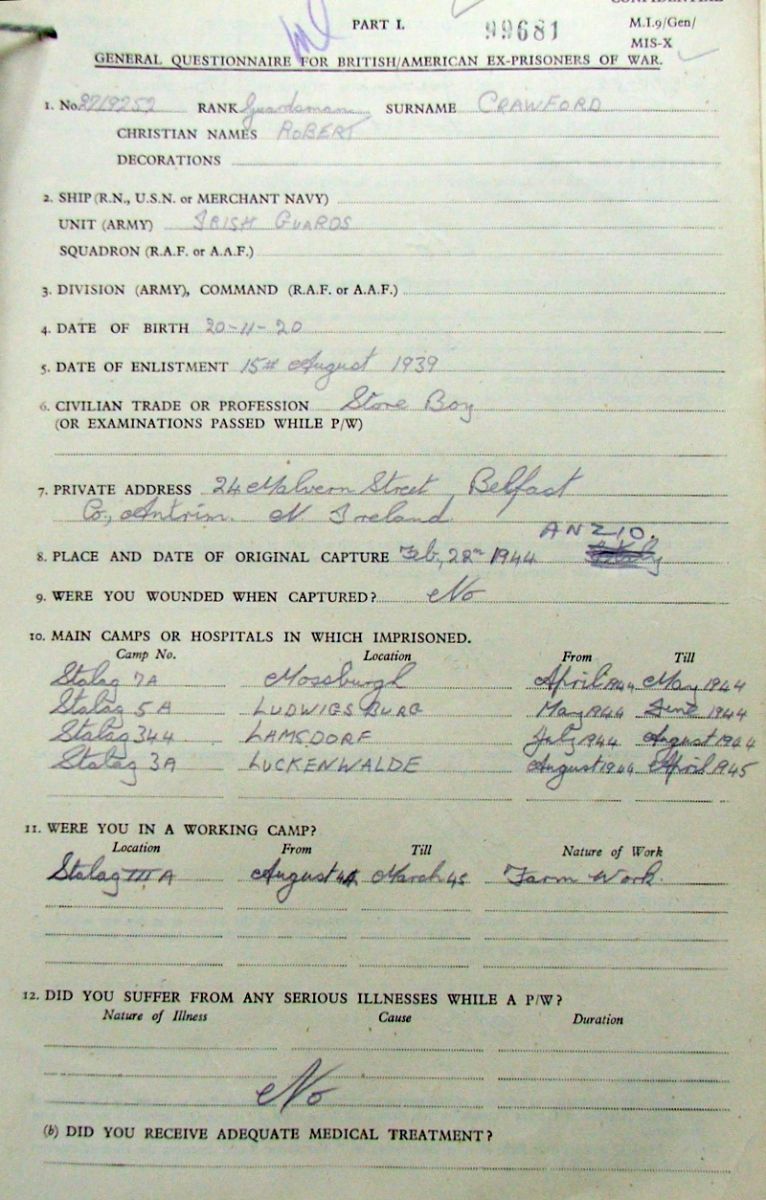 CONFIDENTIAL
PART I. 99681 M.I.9/Gen/
MIS-X
GENERAL QUESTIONNAIRE FOR BRITISH/AMERICAN EX-PRISONERS OF WAR.
1. No. 2719252 RANK Guardsman SURNAME CRAWFORD
CHRISTIAN NAMES ROBERT
DECORATIONS
2. SHIP (R.N., U.S.N. or MERCHANT NAVY)
UNIT (ARMY) IRISH GUARDS
SQUADRON (R.A.F. or A.A.F.)
3. DIVISION (ARMY), COMMAND (R.A.F. or A.A.F.)
4. DATE OF BIRTH 20-11-20
5. DATE OF ENLISTMENT 15th August 1939
6. CIVILIAN TRADE OR PROFESSION Store Boy
(OR EXAMINATIONS PASSED WHILE P/W)
7. PRIVATE ADDRESS 24 Malvern Street, Belfast
Co, Antrim. N Ireland
ANZIO.
8. PLACE AND DATE OF ORIGINAL CAPTURE Feb, 22nd 1944
9. WERE YOU WOUNDED WHEN CAPTURED? No
10. MAIN CAMPS OR HOSPITALS IN WHICH IMPRISONED.
Camp No. Location From Till
Stalag 7A Mossburgh April 1944 May 1944
Stalag 5A LUDWIGSBURG May 1944 June 1944
Stalag 344 LAMSDORF July 1944 August 1944
Stalag 3A LUCKENWALDE August 1944 April 1945
11. WERE YOU IN A WORKING CAMP?
Location From Till Nature of Work
Stalag III A August 44 March 45 Farm Work.
12. DID YOU SUFFER FROM ANY SERIOUS ILLNESSES WHILE A P/W?
Nature of Illness Cause Duration
No
(b) DID YOU RECEIVE ADEQUATE MEDICAL TREATMENT?